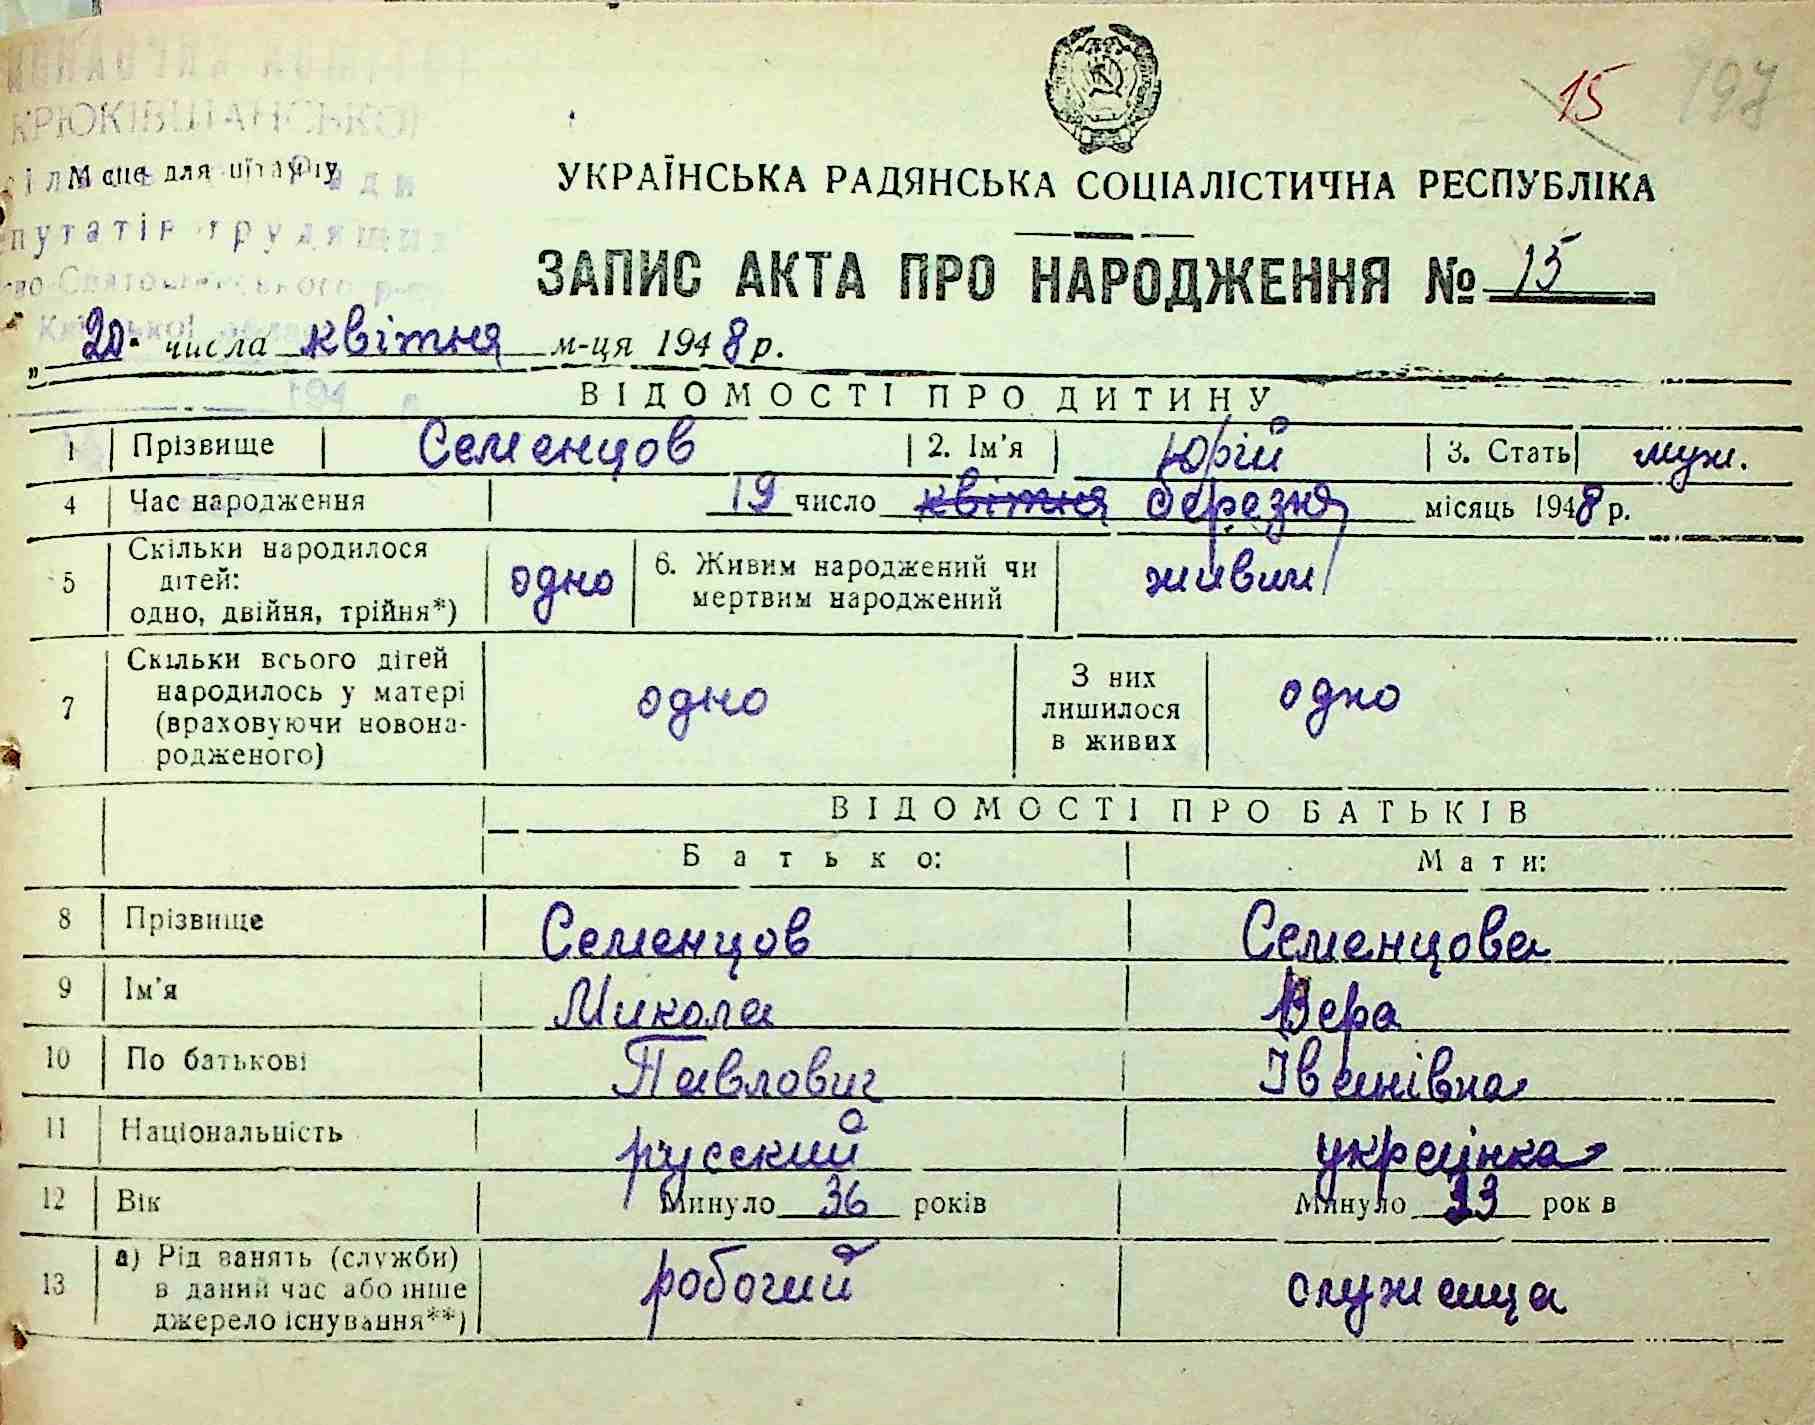 15 197
КРЮКІВЩАНСЬКОЇ
Місце для штампу
УКРАЇНСЬКА РАДЯНСЬКА СОЦІАЛІСТИЧНА РЕСПУБЛІКА
ЗАПИС АКТА ПРО НАРОДЖЕННЯ № 15
„ 20 " числа квітня м-ця 1948 р.
ВІДОМОСТІ ПРО ДИТИНУ
1 Прізвище Семенцов 2. Ім'я Юрій 3. Стать муж.
4 Час народження 19 число квітня березня місяць 1948 р.
5 Скільки народилося дітей: одно, двійня, трійня*) одно 6. Живим народжений чи мертвим народжений живим
7 Скільки всього дітей народилось у матері (враховуючи новонародженого) одно З них лишилося в живих одно
ВІДОМОСТІ ПРО БАТЬКІВ
Батько: Мати:
8 Прізвище Семенцов Семенцова
9 Ім'я Микола Вера
10 По батькові Павлович Іванівна
11 Національність русский украінка
12 Вік Минуло 36 років Минуло років
13 а) Рід занять (служби) в даний час або інше джерело існування**) робочий служеща